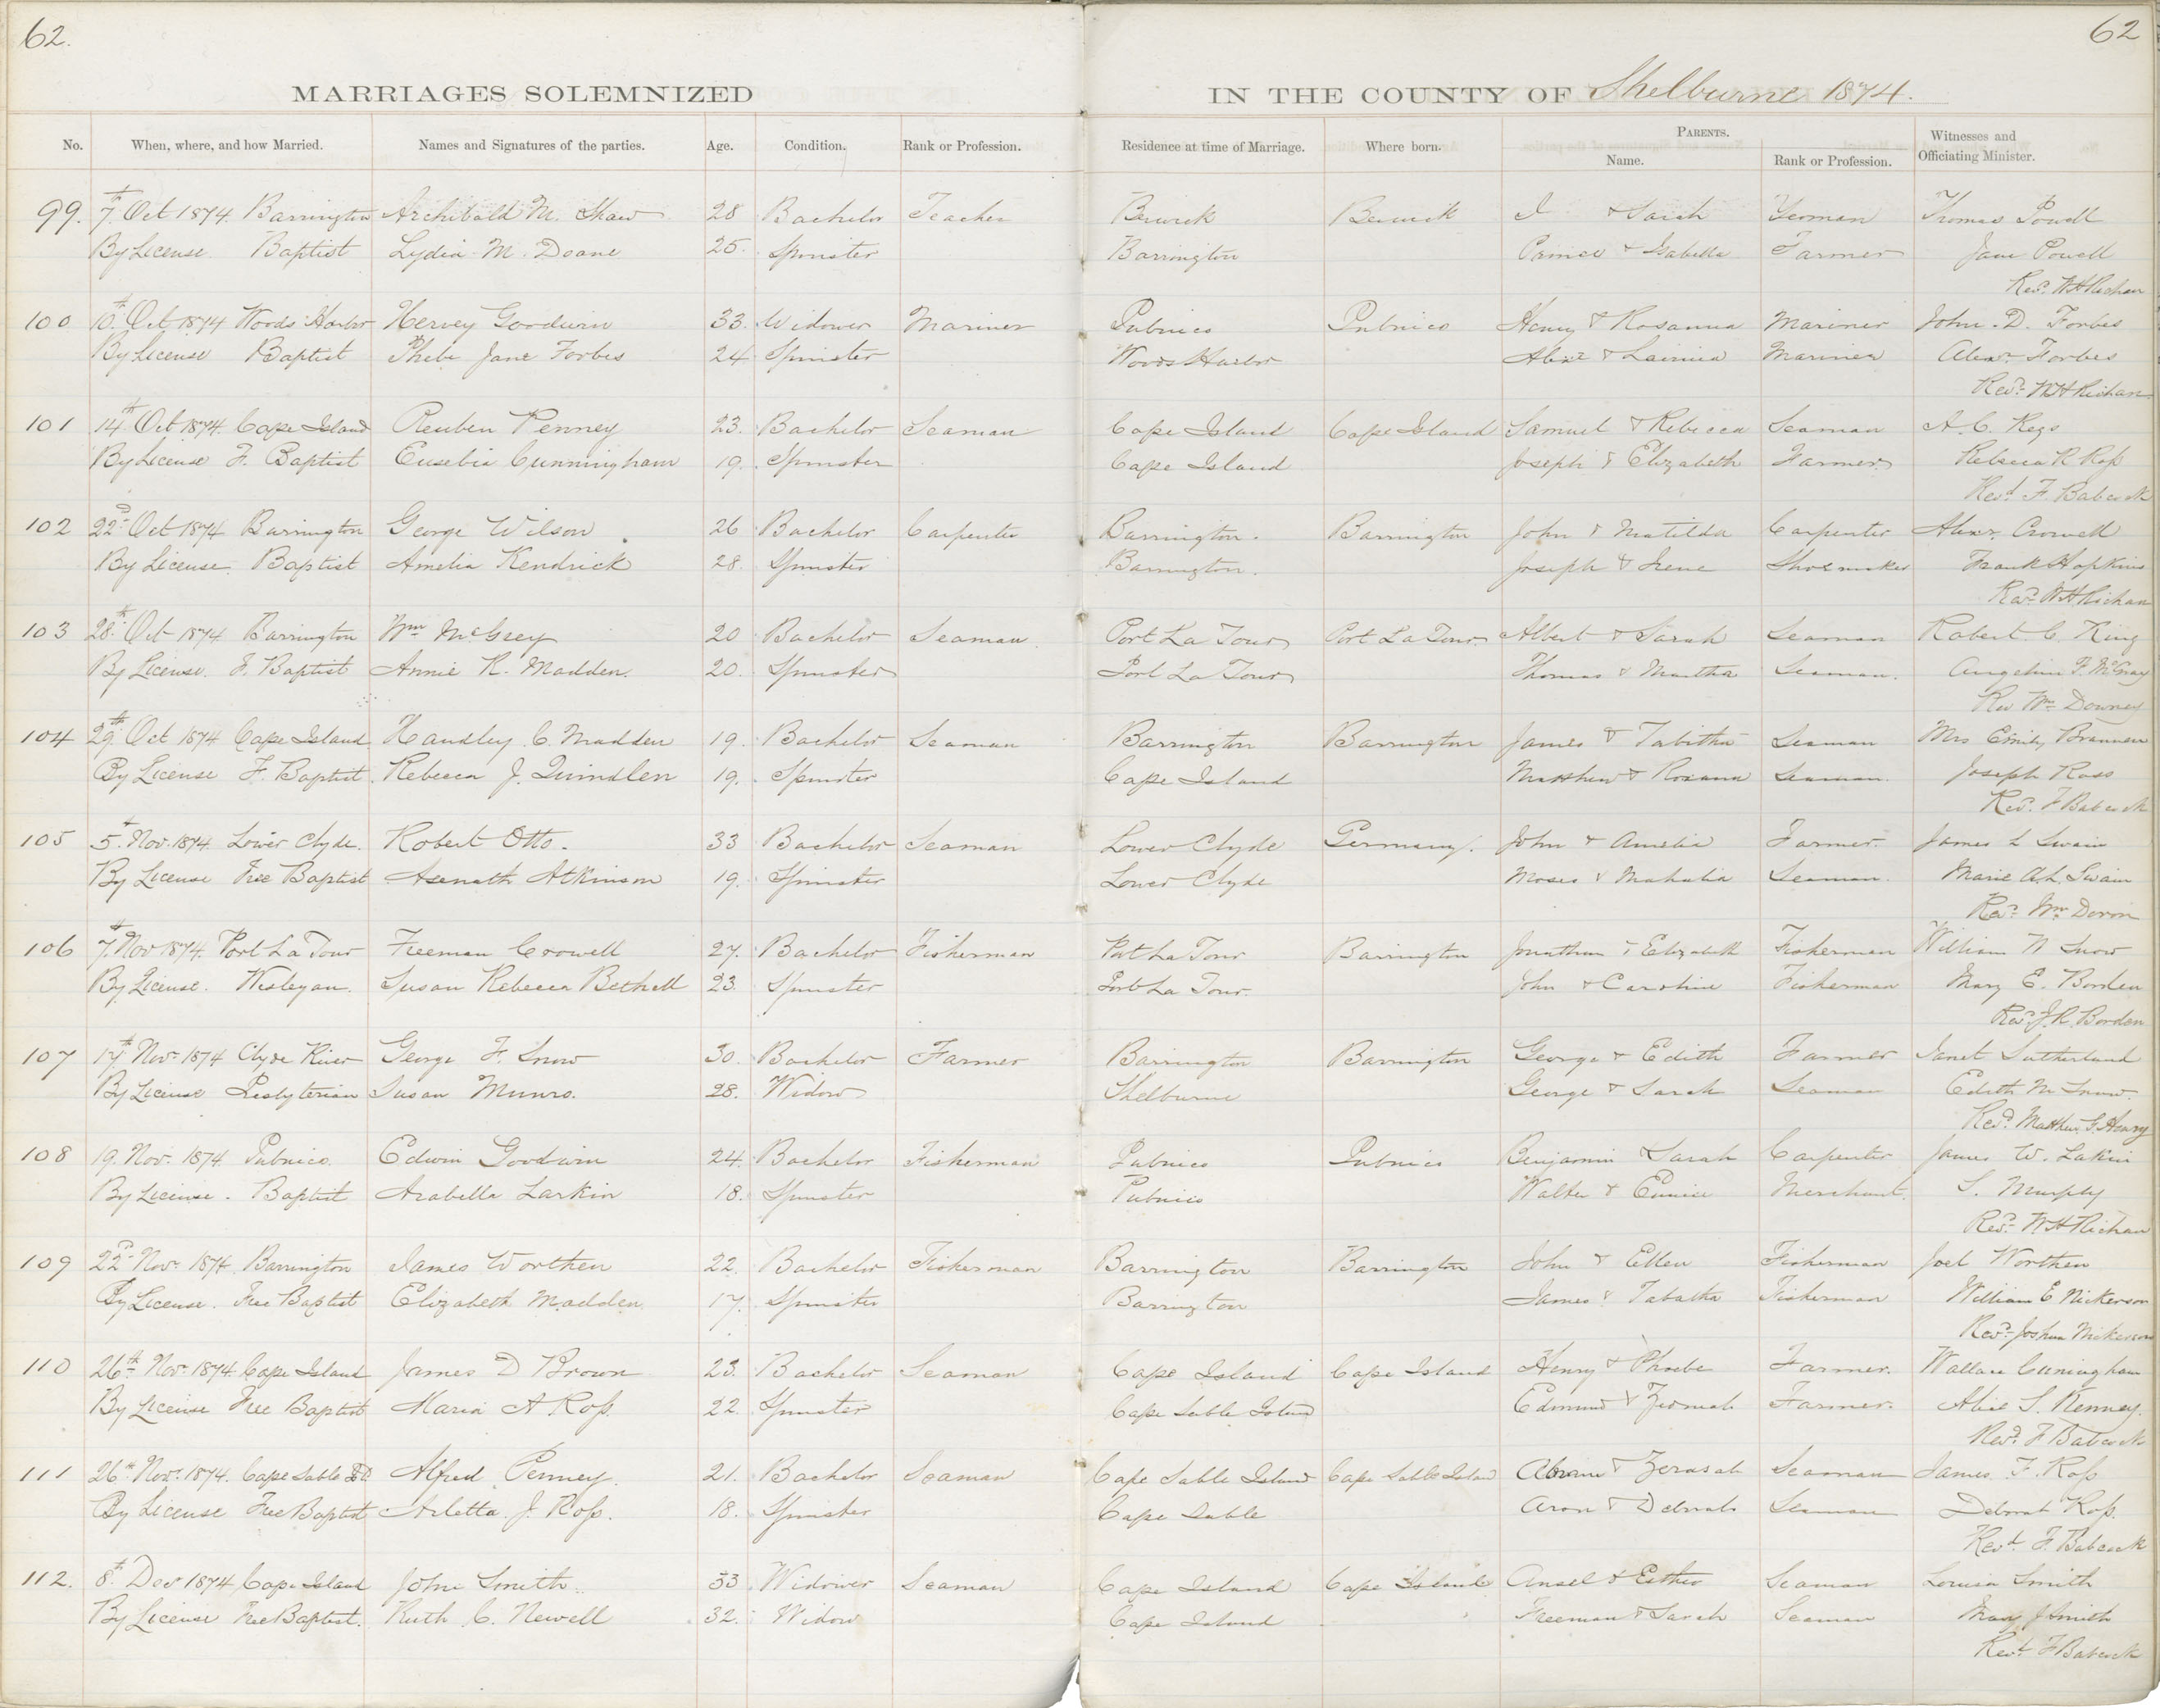 62.
62
MARRIAGES SOLEMNIZED
IN THE COUNTY OF Shelburne 1874.
No. When, where, and how Married. Names and Signatures of the parties. Age. Condition. Rank or Profession. Residence at time of Marriage. Where born. PARENTS. Name. Rank or Profession. Witnesses and Officiating Minister.
99. 7th Oct 1874 Barrington Archibald M. Shaw 28 Bachelor Teacher Berwick Berwick I & Sarah Yeoman Thomas Powell
By License Baptist Lydia M. Doane 25. Spinster Barrington Prince & Isabella Farmer Jane Powell
Revd. WH Richan
100 10th Oct 1874 Woods Harbor Hervey Goodwin 33. Widower Mariner Pubnico Pubnico Henry & Rosanna Mariner John. D. Forbes
By License Baptist Phebe Jane Forbes 24 Spinster Woods Harbor Alexr & Mariner Alexr Forbes
Revd. WH Richan
101 14th Oct 1874 Cape Island Reuben Penney 23. Bachelor Seaman Cape Island Cape Island Samuel & Rebecca Seaman A. C.
By License F. Baptist Eusebia Cunningham 19. Spinster Cape Island Joseph & Elizabeth Farmer Rebecca R Ross
Revd. F. Babcock
102 22d Oct 1874 Barrington George Wilson 26 Bachelor Carpenter Barrington. Barrington John & Matilda Carpenter Alexr. Crowell
By License Baptist Amelia Kendrick 28. Spinster Barrington. Joseph & Irene Shoemaker Frank Hopkins
Revd. WH Richan
103 28th Oct 1874 Barrington Wm McGrey 20 Bachelor Seaman Port La Tour Port La Tour Albert & Sarah Seaman Robert C. King
By License. F. Baptist Annie R. Madden. 20. Spinster Port La Tour Thomas & Martha Seaman. Angelina F. McGray
Rev Wm Downey
104 29th Oct 1874 Cape Island Handley C. Madden 19. Bachelor Seaman Barrington Barrington James & Tabitha Seaman Mrs Emily Brannen
By License F. Baptist Rebecca J. Quindlen 19. Spinster Cape Island Matthew & Roxana Seaman. Joseph Ross
Revd. F Babcock
105 5th Nov. 1874 Lower Clyde. Robert Otto. 33 Bachelor Seaman Lower Clyde Germany. John & Amelia Farmer James L Swain
By License Free Baptist Asenath Atkinson 19. Spinster Lower Clyde Moses & Mahalia Seaman. Marie A.L. Swain
Revd. Wm
106 7th Nov 1874. Port La Tour Freeman Crowell 27. Bachelor Fisherman Port La Tour Barrington Jonathan & Elizabeth Fisherman William N Snow
By License. Wesleyan. Susan Rebecca Bethell 23. Spinster Port La Tour. John & Caroline Fisherman Mary E. Borden
Revd. J.R. Borden
107 17th Nov. 1874 Clyde River George F. Snow 30. Bachelor Farmer Barrington Barrington George & Edith Farmer Janet Sutherland
By License Presbyterian Susan Munro. 28. Widow Shelburne George & Sarah Seaman Edith M Snow.
Revd. Matthew G. Henry
108 19. Nov. 1874 Pubnico. Edwin Goodwin 24. Bachelor Fisherman Pubnico Pubnico Benjamin & Sarah Carpenter James W. Larkin
By License. Baptist Arabella Larkin 18. Spinster Pubnico Walter & Eunice Merchant. S. Murphy
Revd. WH Richan
109 22d Nov. 1874 Barrington James Worthen 22. Bachelor Fisherman Barrington Barrington John & Ellen Fisherman Joel Worthen
By License. Free Baptist Elizabeth Madden 17. Spinster Barrington James & Tabatha Fisherman William E Nickerson
Revd. Joshua Nickerson
110 26th Nov. 1874. Cape Island James D Brown 23. Bachelor Seaman Cape Island Cape Island Henry & Phoebe Farmer. Wallace Cuningham
By License Free Baptist Maria A Ross. 22. Spinster Cape Sable Island Edmund & Farmer. Alice S. Kenney.
Revd. F Babcock
111 26th Nov. 1874. Cape Sable Isd Alfred Penney. 21. Bachelor Seaman Cape Sable Island Cape Sable Island Abram & Zeruiah Seaman James F. Ross
By License Free Baptist Arletta J. Ross. 18. Spinster Cape Sable Aron & Deborah Seaman Deborah Ross.
Revd. F. Babcock
112. 8th Decr 1874 Cape Island John Smith. 33 Widower Seaman Cape Island Cape Island Ansel & Esther Seaman Louisa Smith
By License Free Baptist. Ruth C. Newell 32. Widow Cape Island Freeman & Sarah Seaman Mary J Smith
Revd. F Babcock